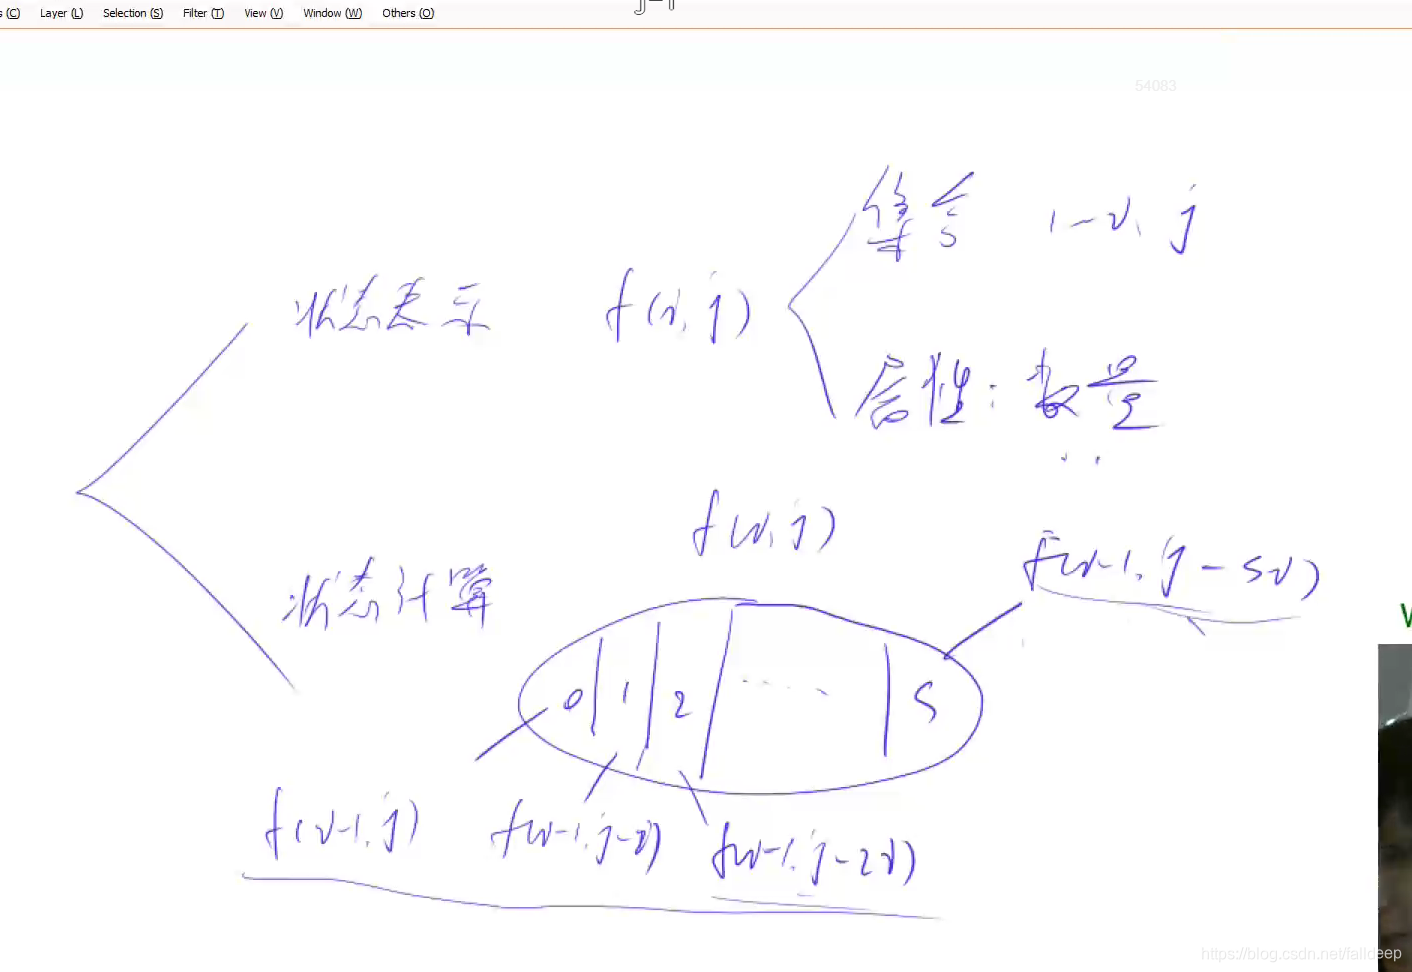 (C) Layer (L) Selection (S) Filter (T) View (V) Window (W) Others (O)
54083
集合 1-i, j
状态表示 f(i, j)
属性: 数量
f(i, j)
f(i-1, j-si)
状态计算
0 1 2 .... s
f(i-1, j) f(i-1, j-i) f(i-1, j-2i)
https://blog.csdn.net/falldeep